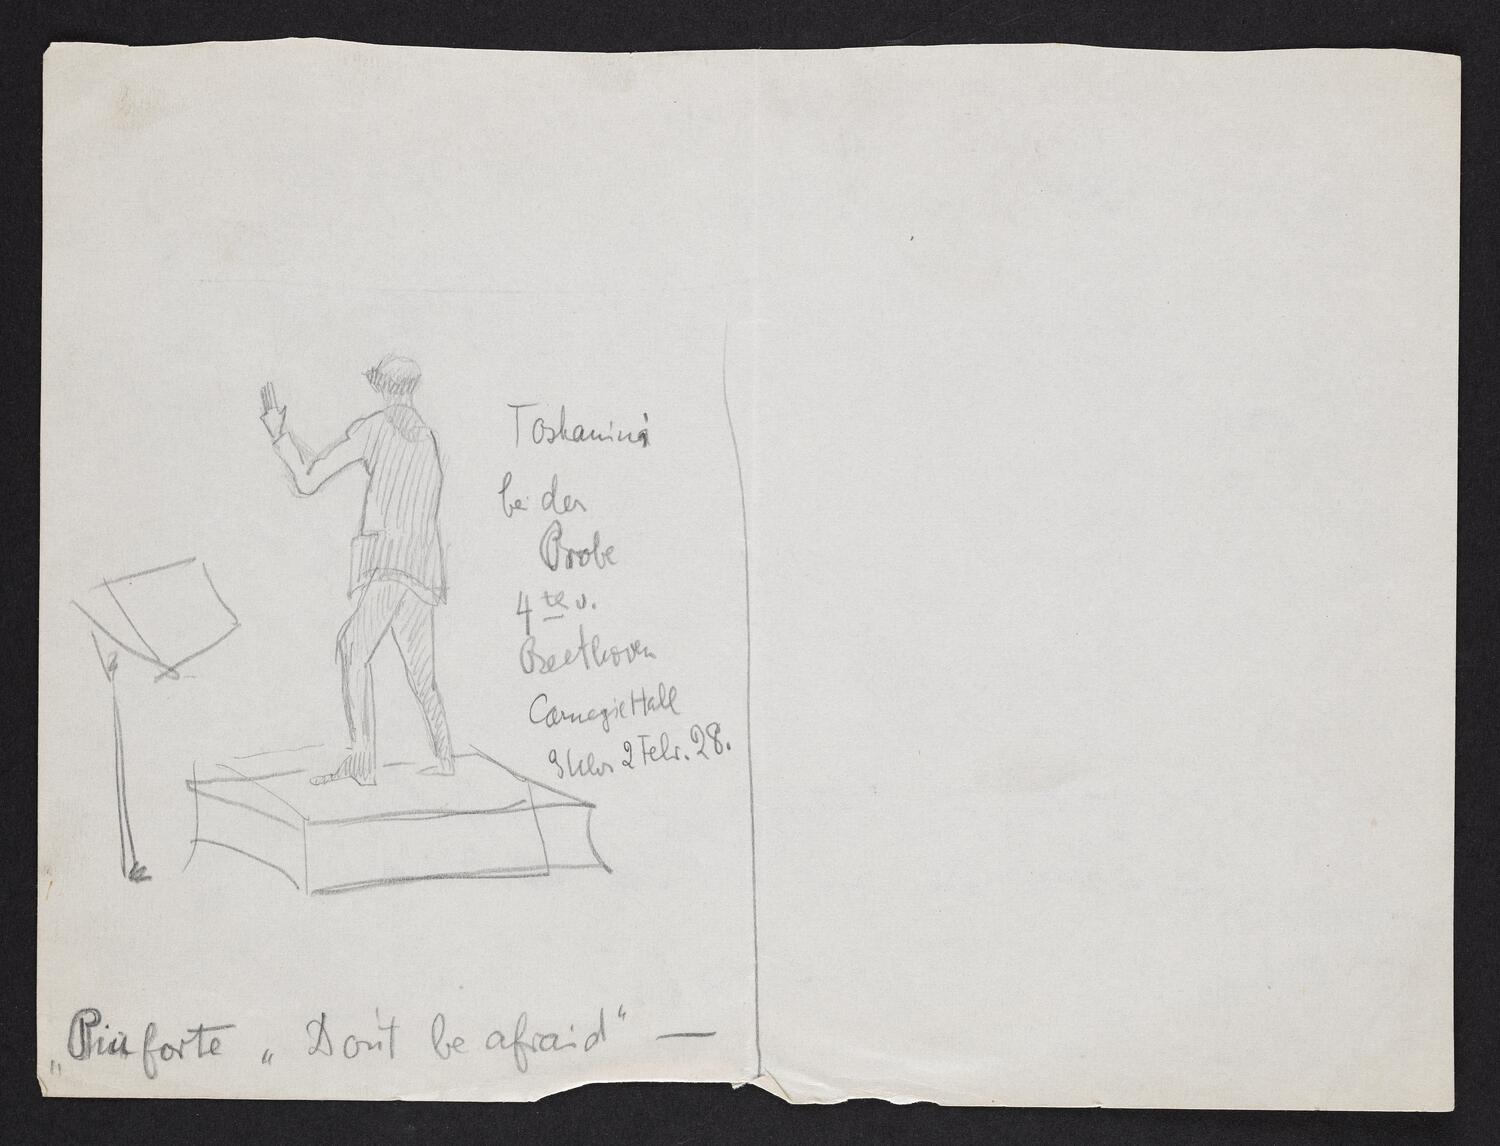 Toskanini
bei der
Probe
4te v.
Beethoven
Carnegie Hall
2 Febr. 28.
„Piu forte „ Don't be afraid“ —